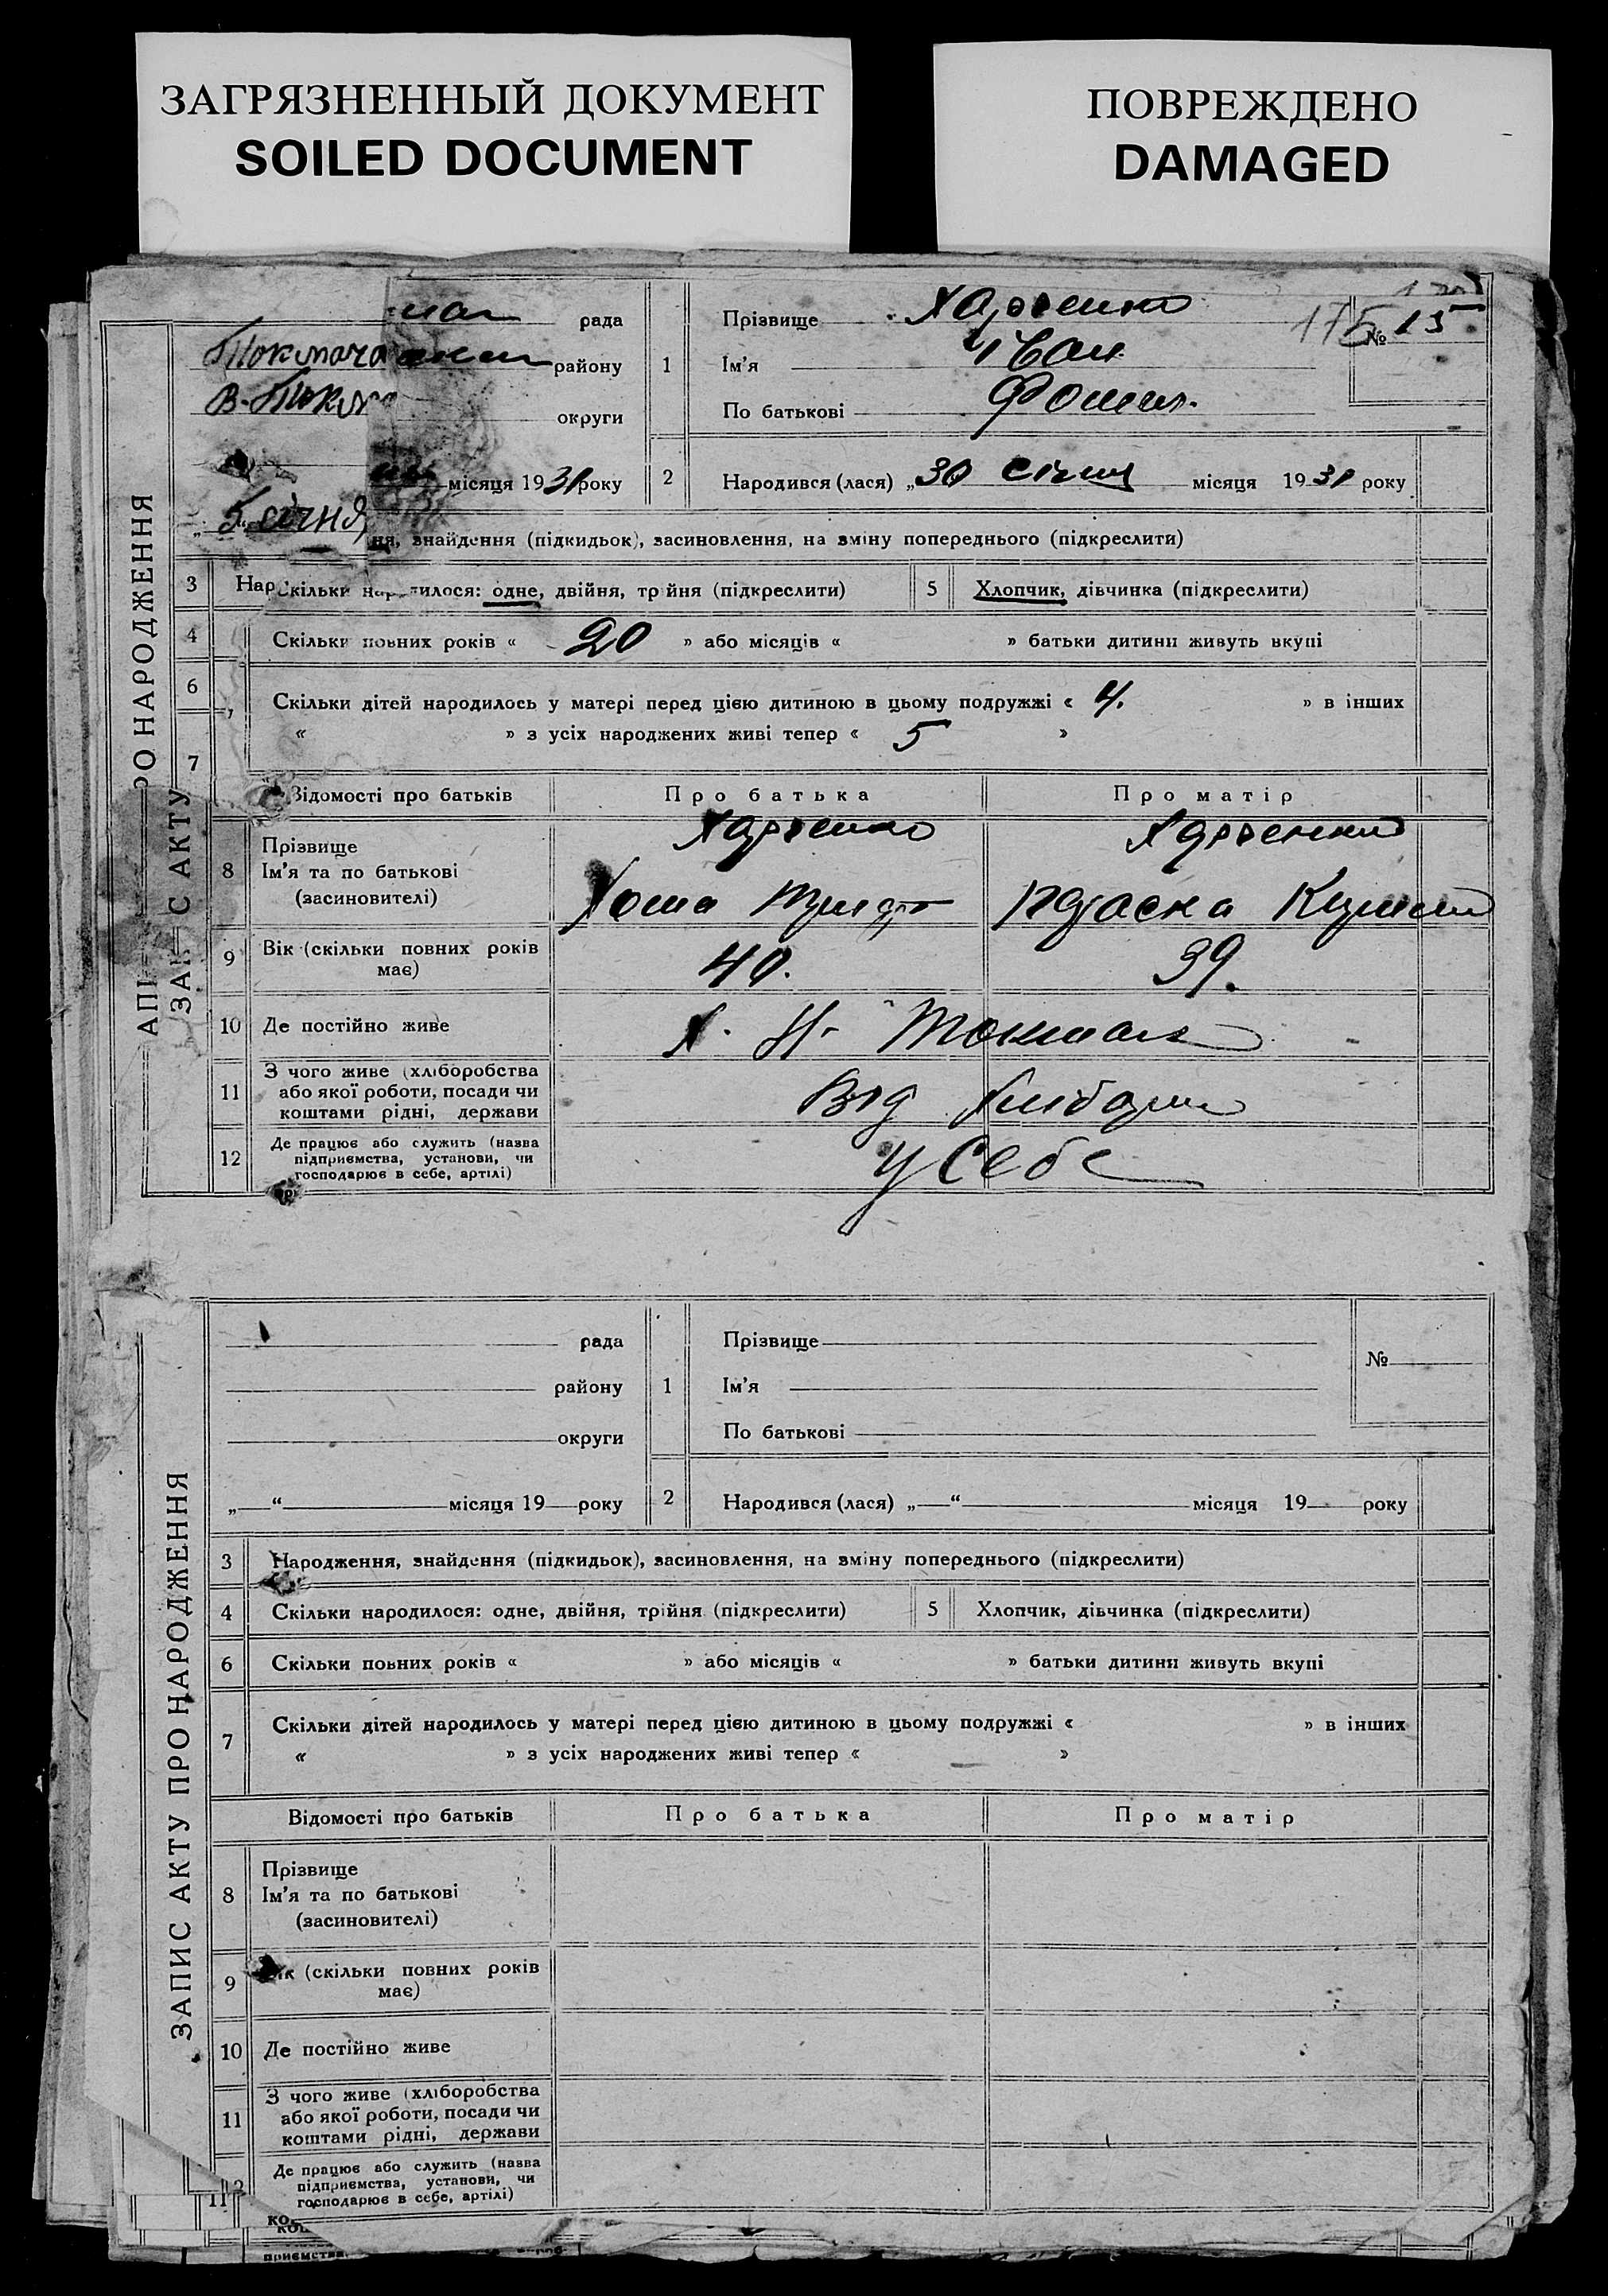 ЗАГРЯЗНЕННЫЙ ДОКУМЕНТ
SOILED DOCUMENT
ПОВРЕЖДЕНО
DAMAGED
рада
району
В-Токм
округи
місяця 1931 року
5 січня
1
Прізвище Харченко
Ім'я Іван
По батькові Фомич
175
№ 15
2 Народився (лася) „30 січня місяця 1931 року
РО НАРОДЖЕННЯ
С АКТУ
ня, знайдення (підкидьок), засиновлення, на зміну попереднього (підкреслити)
3 Нар
Скільки народилося: одне, двійня, трійня (підкреслити)
5 Хлопчик, дівчинка (підкреслити)
4 Скільки повних років « 20 » або місяців « » батьки дитини живуть вкупі
6
Скільки дітей народилось у матері перед цією дитиною в цьому подружжі « 4. » в інших
« » з усіх народжених живі тепер « 5 »
7
Відомості про батьків
Про батька
Про матір
8
Прізвище
Ім'я та по батькові
(засиновителі)
Харченко
Харченко
9 Вік (скільки повних років
має)
40.
39.
10 Де постійно живе
Токмак
11
З чого живе (хліборобства
або якої роботи, посади чи
коштами рідні, держави
Від
12
Де працює або служить (назва
підприємства, установи, чи
господарює в себе, артілі)
у Себе
ЗАПИС АКТУ ПРО НАРОДЖЕННЯ
рада
району
округи
„ “ місяця 19 року
1
Прізвище
Ім'я
По батькові
№
2 Народився (лася) „ “ місяця 19 року
3 Народження, знайдення (підкидьок), засиновлення, на зміну попереднього (підкреслити)
4 Скільки народилося: одне, двійня, трійня (підкреслити)
5 Хлопчик, дівчинка (підкреслити)
6 Скільки повних років « » або місяців « » батьки дитини живуть вкупі
7
Скільки дітей народилось у матері перед цією дитиною в цьому подружжі « » в інших
« » з усіх народжених живі тепер « »
Відомості про батьків
Про батька
Про матір
8
Прізвище
Ім'я та по батькові
(засиновителі)
9 Вік (скільки повних років
має)
10 Де постійно живе
11
З чого живе (хліборобства
або якої роботи, посади чи
коштами рідні, держави
Де працює або служить (назва
підприємства, установи, чи
господарює в себе, артілі)
11